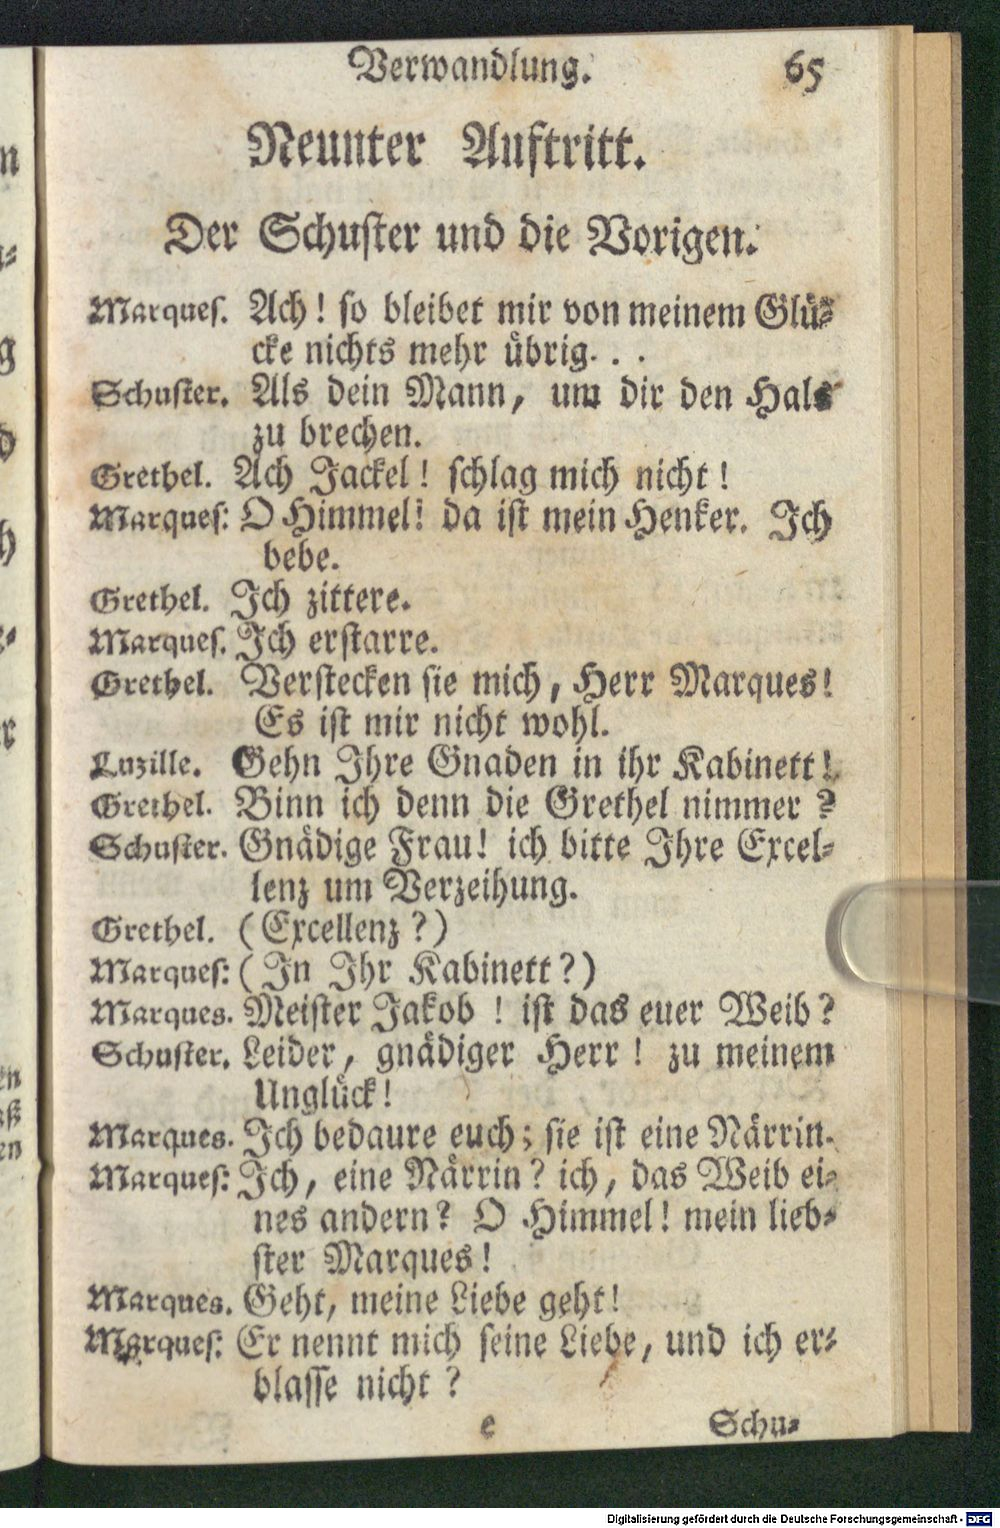 Verwandlung. 65
Neunter Auftritt.
Der Schuster und die Vorigen.
Marques. Ach! so bleibet mir von meinem Glü-
cke nichts mehr übrig. . .
Schuster. Als dein Mann, um dir den Hals
zu brechen.
Grethel. Ach Jackel! schlag mich nicht!
Marques: O Himmel! da ist mein Henker. Ich
bebe.
Grethel. Ich zittere.
Marques. Ich erstarre.
Grethel. Verstecken sie mich, Herr Marques!
Es ist mir nicht wohl.
Luzille. Gehn Ihre Gnaden in ihr Kabinett!
Grethel. Binn ich denn die Grethel nimmer?
Schuster. Gnädige Frau! ich bitte Ihre Excel-
lenz um Verzeihung.
Grethel. (Excellenz?)
Marques: (In Ihr Kabinett?)
Marques. Meister Jakob! ist das euer Weib?
Schuster. Leider, gnädiger Herr! zu meinem
Unglück!
Marques. Ich bedaure euch; sie ist eine Närrin.
Marques: Ich, eine Närrin? ich, das Weib ei-
nes andern? O Himmel! mein lieb-
ster Marques!
Marques. Geht, meine Liebe geht!
Marques: Er nennt mich seine Liebe, und ich er-
blasse nicht?
e Schu-
Digitalisierung gefördert durch die Deutsche Forschungsgemeinschaft - DFG